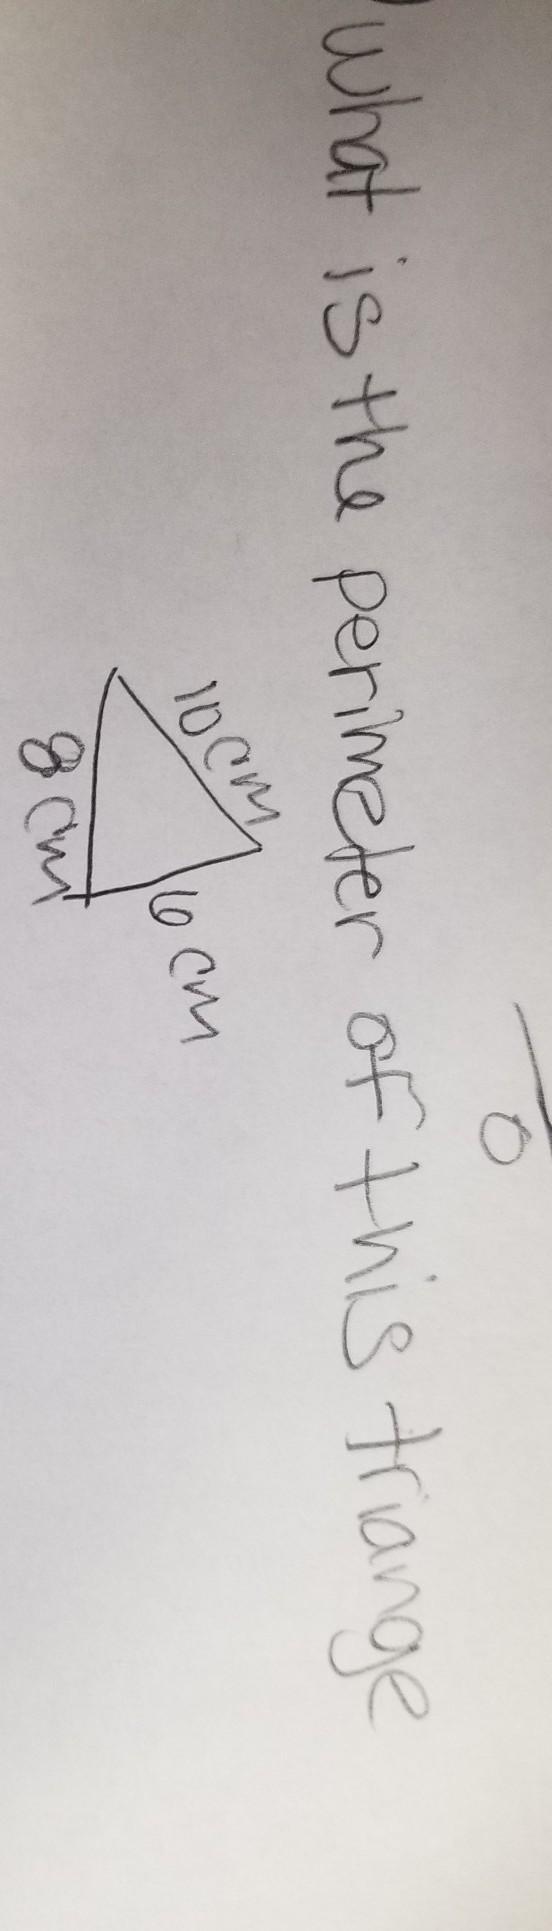 what is the perimeter of this triange
10cm
6 cm
8 cm